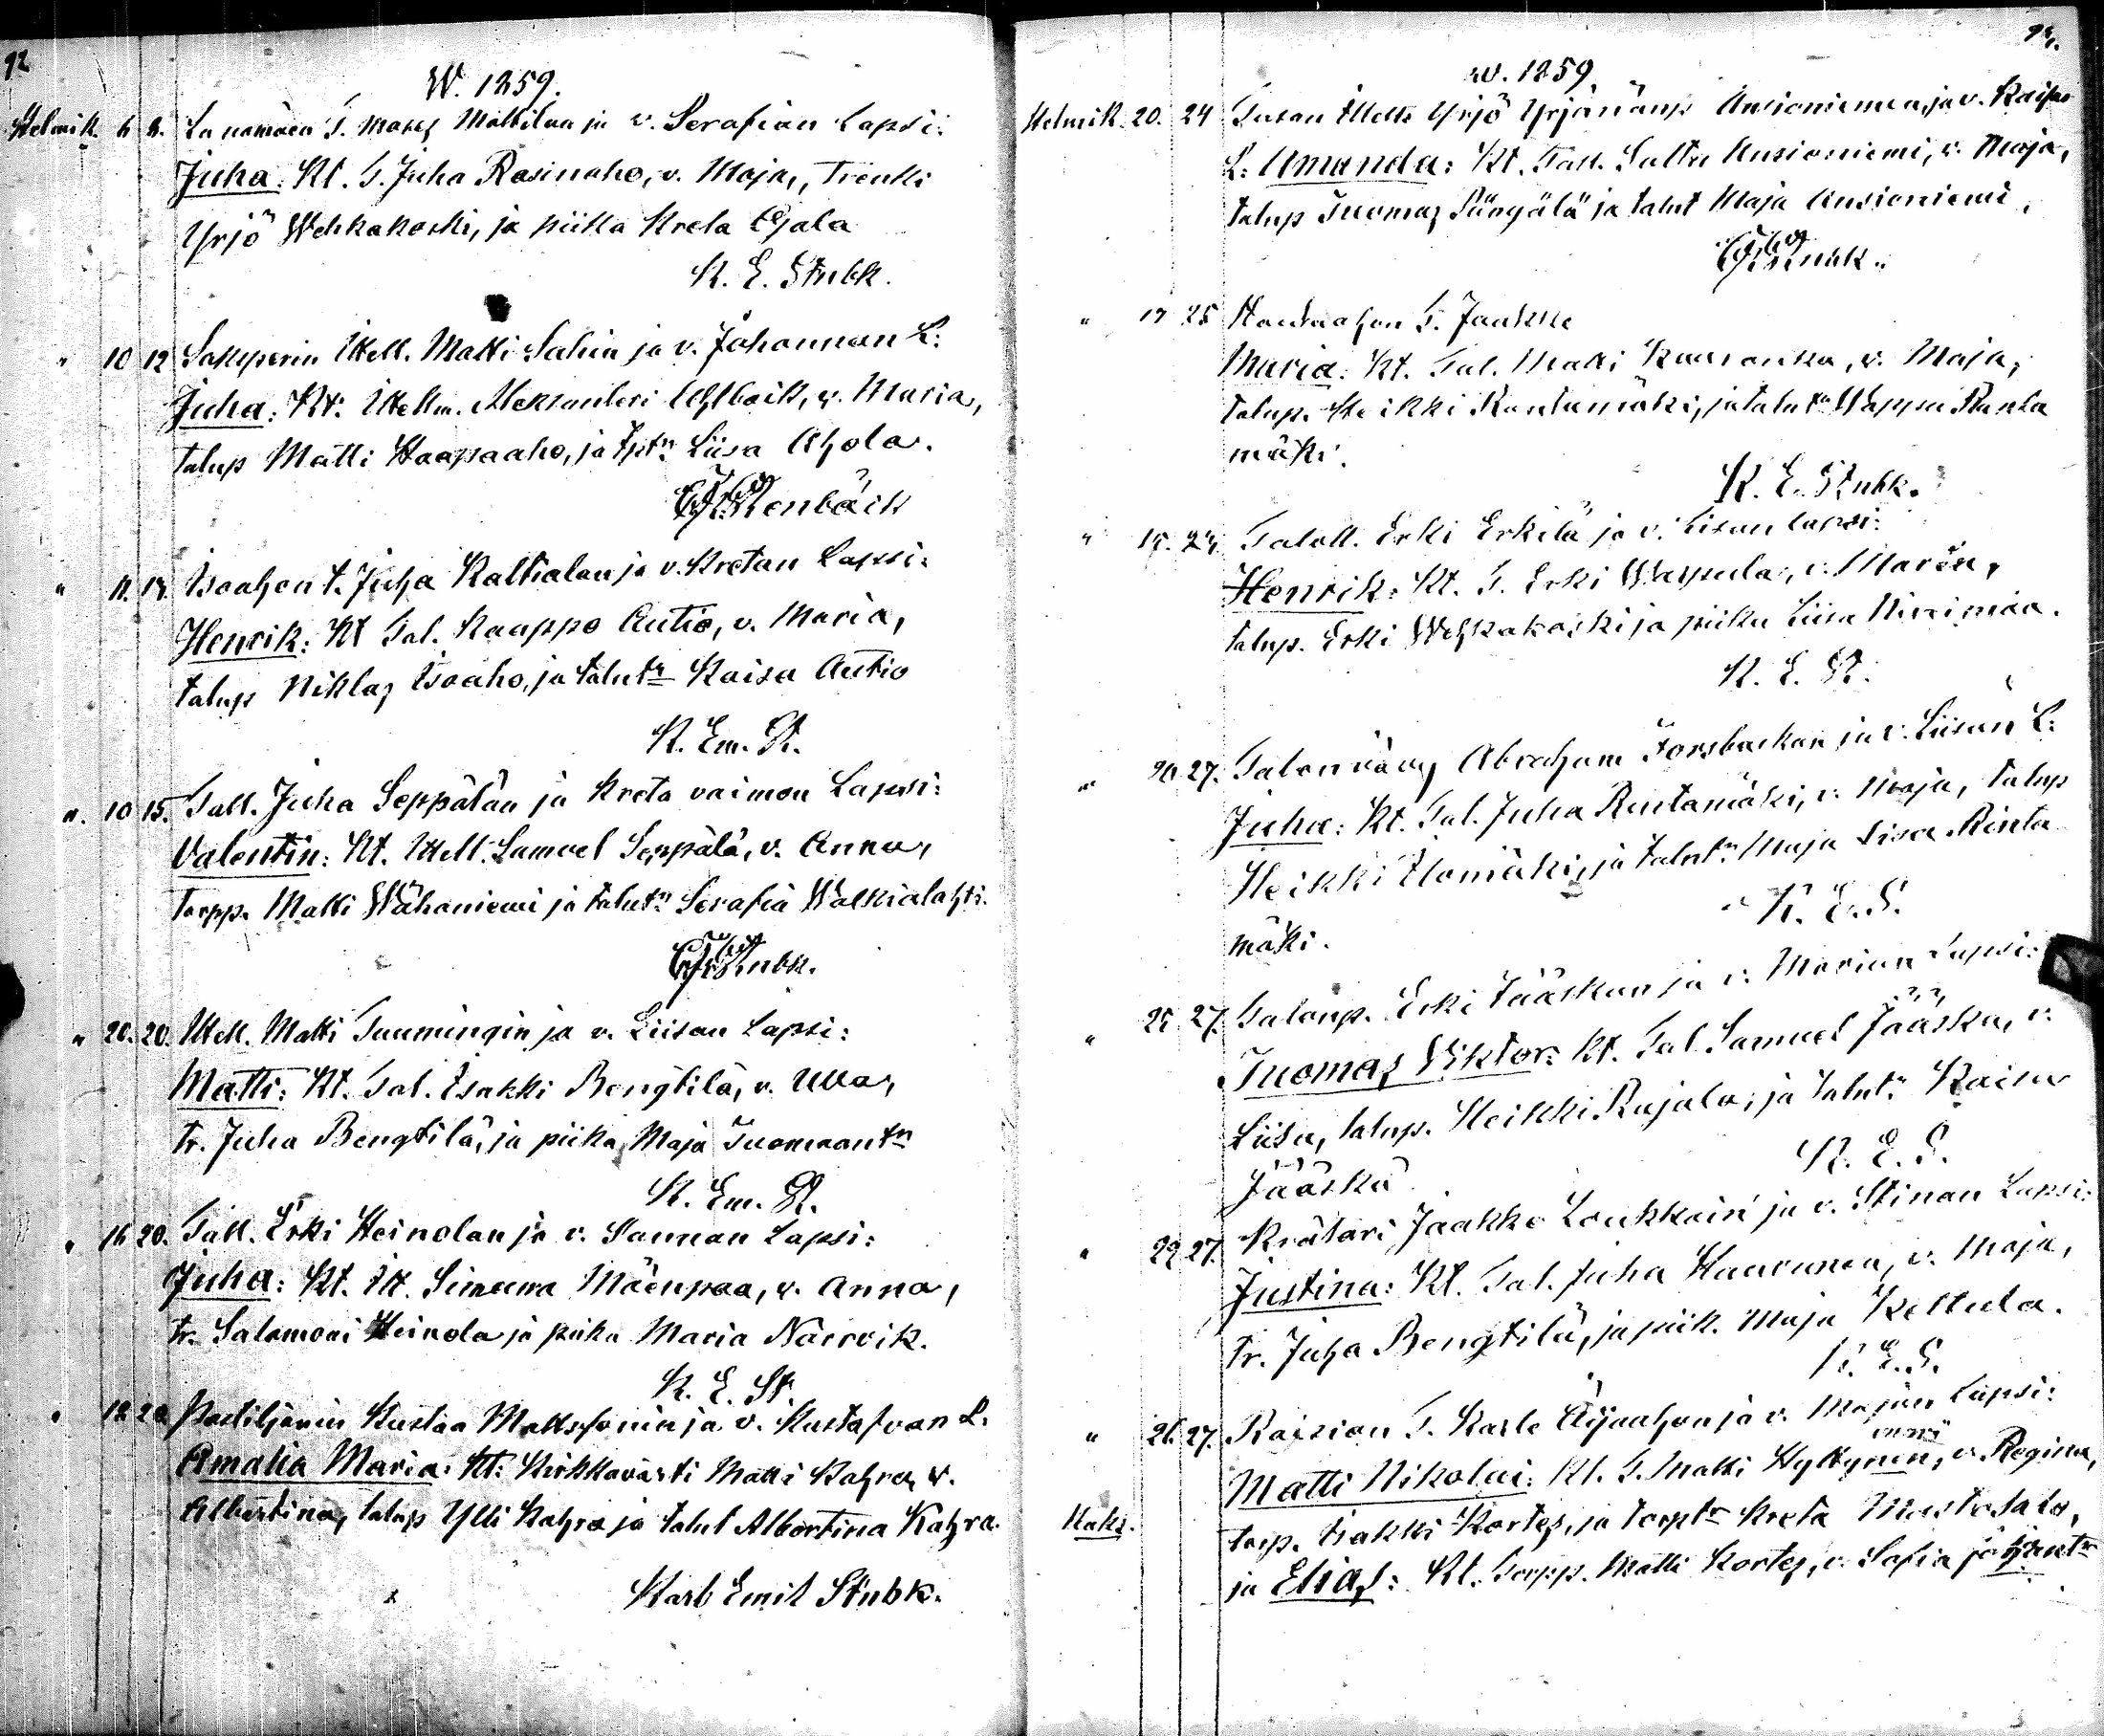 92
W. 1859.
Helmik. 6 8. Lanamäen T. Moses Mattilan ja v. Serafian Lapsi:
Juha: Kt. T. Juha Rasinaho, v. Maja, Trenki
Yrjö Wehkakoski, ja piika Kreta Ojala
K. E. Stubk.
" 10 12 Itell. Matti Sahin ja v. Johannan L:
Juha: Kt. Itellm. Aleksanteri v. Maria,
talup Matti Haapaaho, ja Liisa Ahola.
" 11. 13. Isoahon t. Juha Kaltialan ja v. Kretan Lapsi:
Henrik: Kt Tal. Kaappo Autio, v. Maria,
talup Niklas Isoaho, ja talutr Kaisa Autio
K. Em. St.
" 10 15. Tall. Juha Seppälän ja Kreta vaimon Lapsi:
Valentin: Kt. Itell. Samuel Seppälä, v. Anna,
torpp. Matti Wähäniemi ja talutr Serafia Walkialahti.
" 20. 20. Itell. Matti Tuumingin ja v. Liisan Lapsi:
Matti: Kt. Tal. Isakki Bengtilä, v. Ulla,
tr. Juha Bengtilä, ja piika Maja Tuomaantr
K. Em. St.
" 16 20. Tall. Erki Heinolan ja v. Sannan Lapsi:
Juha: Kt. It. Simeuna Mäenpaa, v. Anna,
tr. Salomoni Heinola ja piika Maria Närvik.
K. E. St.
" 18 20 Postiljonin Kustaa Mattssonin ja v. Kustafvan L.
Amalia Maria: Kt. Kirkkovärti Matti Kahra, v.
Albertina, talup Ylli Kahra ja talut Albertina Kahra.
Karl Emil Stubk.
W. 1859
Helmik. 20. 24 Itells Yrjö Yrjönänp Ansioniemen, ja v. Kaisan
L: Amanda: Kt. Tall. Salttu Ansioniemi, v. Maja,
talup Tuomas Pöngälä ja talut Maja Ansioniemi,
" 17 25 T. Jaakko
Maria: Kt. Tal. Matti v. Maja,
talup. Heikki Rantamäki, ja talutr Wappu Ranta
mäki.
K. E. Stubk.
" Taloll. Erki Erkilä ja v. Lisan lapsi:
Henrik: Kt. T. Erki Wappula, v. Maria,
talup. Erki Wehkakoski ja piika Liisa Niinimaa.
K. E. St.
" 20 27. Abraham Forsbackan ja v. Liisan L:
Juha: Kt. Tal. Juha Rintamäki, v. Maja, talup
Heikki Ilomäki, ja talutr Maja Lisa Rinta
mäki.
K. E. S.
" 25 27. Talonp. Erki Jääskän ja v. Marian Lapsi:
Tuomas Viktor: Kt. Tal. Samuel Jääskä, v.
Liisa, talup. Heikki Rajala, ja talutr Kaisa
Jääskä
K. E. S.
" 22 27. Krätari Jaakko Loukkoin ja v. Stinan Lapsi:
Justina: Kt. Tal. Juha Haarunen, v. Maja,
tr. Juha Bengtilä, ja piik. Maja Kettula.
K. E. S.
" 26. 27. Raision T. Karle Äijänahon ja v. Majan Lapsi:
Matti Nikolai: Kt. T. Matti Hyttynen, v. Regina,
Kaks. torp. Isakki Kortes, ja torptr Kreta Mustasalo,
ja Elias: Kt. Torpp. Matti Kortes, v. Sofia